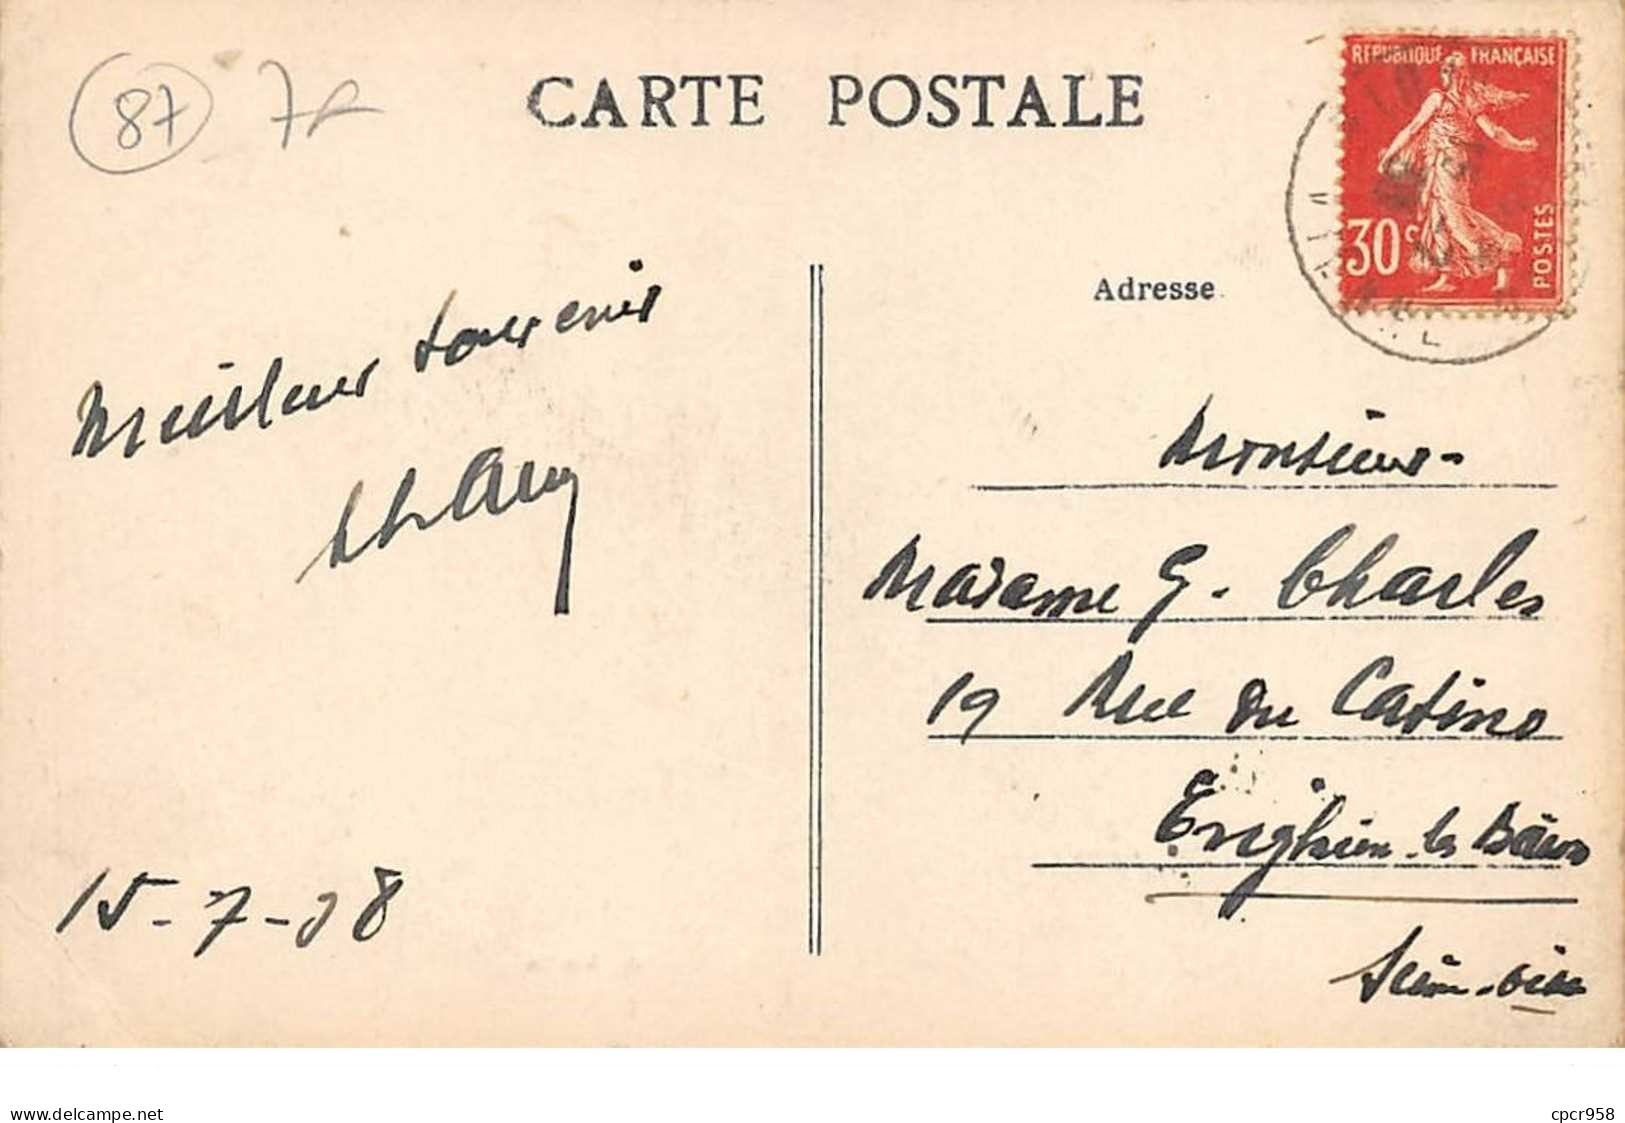 87
CARTE POSTALE
REPUBLIQUE FRANÇAISE
30c
POSTES
Meilleur souvenir
Adresse
Monsieur-
Madame G. Charles
19 Rue du Casino
Enghien-les Bains
Seine-Oise
15-7-38
www.delcampe.net
cpcr958